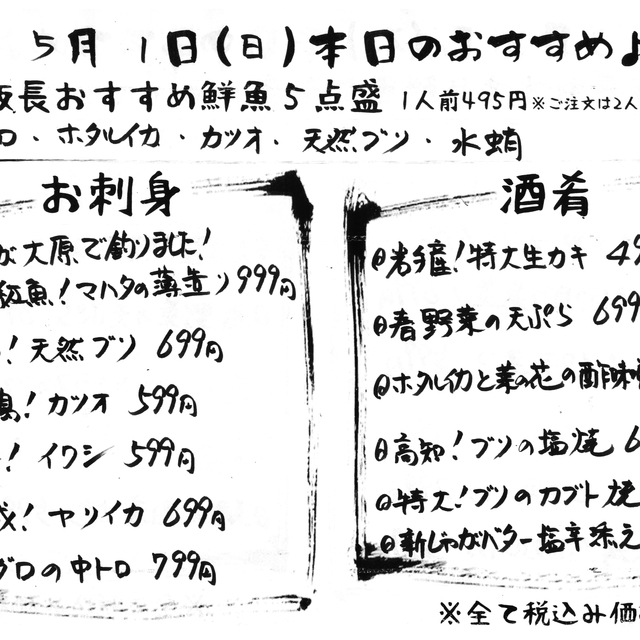 5月1日(日)本日のおすすめ
板長おすすめ鮮魚5点盛 1人前495円 ※ご注文は2人
ロ・ホタルイカ・カツオ・天然ブリ・水蛸
お刺身
が大原で釣りました!
魚!マハタの薄造り 999円
!天然ブリ 699円
!カツオ 599円
!イワシ 599円
!ヤリイカ 699円
グロの中トロ 799円
酒肴
岩手産!特大生カキ 49
春野菜の天ぷら 699
ホタルイカと菜の花の酢味
高知!ブリの塩焼 6
特大!ブリのカブト焼
新じゃがバター塩辛添え
※全て税込み価